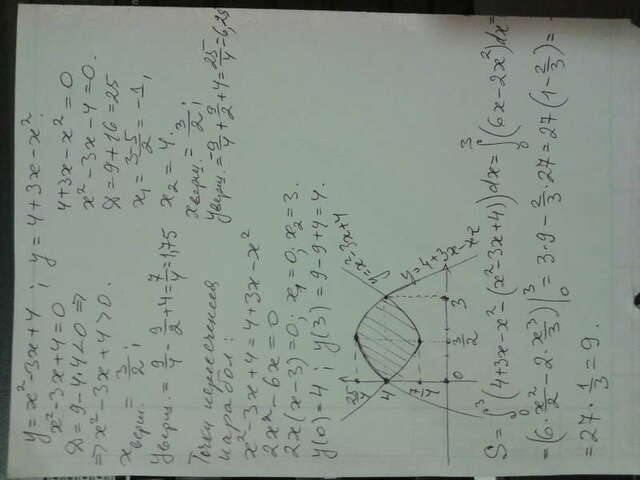 y = x² - 3x + 4 ; y = 4 + 3x - x²
x² - 3x + 4 = 0
D = 9 - 4·4 < 0 ⇒
⇒ x² - 3x + 4 > 0.
x верш. = 3/2 ;
y верш. = 9/4 - 9/2 + 4 = 7/4 = 1,75
4 + 3x - x² = 0
x² - 3x - 4 = 0.
D = 9 + 16 = 25
x₁ = (3-5)/2 = -1,
x₂ = 4.
x верш. = 3/2 ;
y верш. = -9/4 + 9/2 + 4 = 25/4 = 6,25
Точки пересечения
парабол:
x² - 3x + 4 = 4 + 3x - x²
2x² - 6x = 0
2x(x - 3) = 0; x₁ = 0, x₂ = 3.
y(0) = 4 ; y(3) = 9 - 9 + 4 = 4.
y = x² - 3x + 4
y = 4 + 3x - x²
25/4
4
7/4
0
3/2
3
S = ∫₀³ (4 + 3x - x² - (x² - 3x + 4)) dx = ∫₀³ (6x - 2x²) dx =
= (6·x²/2 - 2·x³/3) |₀³ = 3·9 - 2/3·27 = 27(1 - 2/3) =
= 27·1/3 = 9.